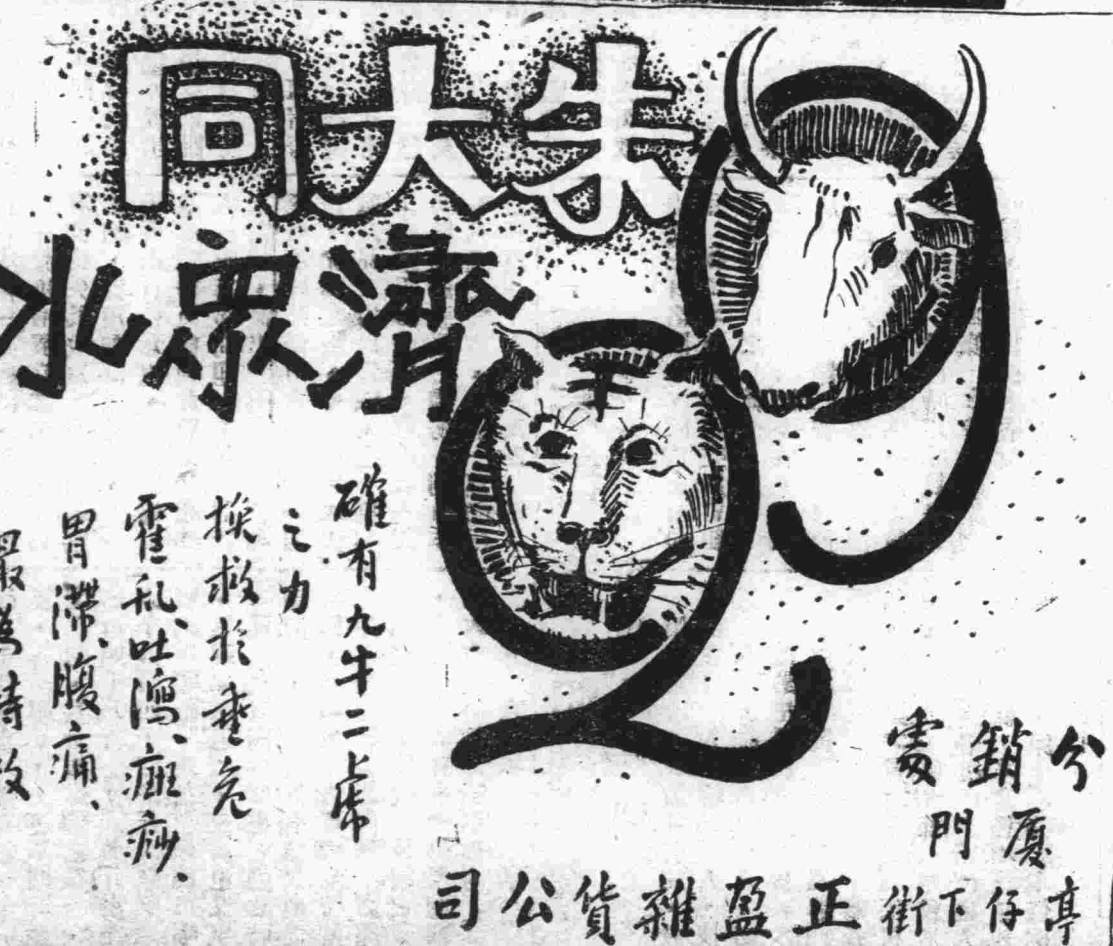 朱大同
濟眾水
9
2
確有九牛二虎
之力
挽救於垂危
霍乱、吐瀉、痧、
胃滯、腹痛、
最為特效
分銷處
厦門
亭仔下街正盈雜貨公司